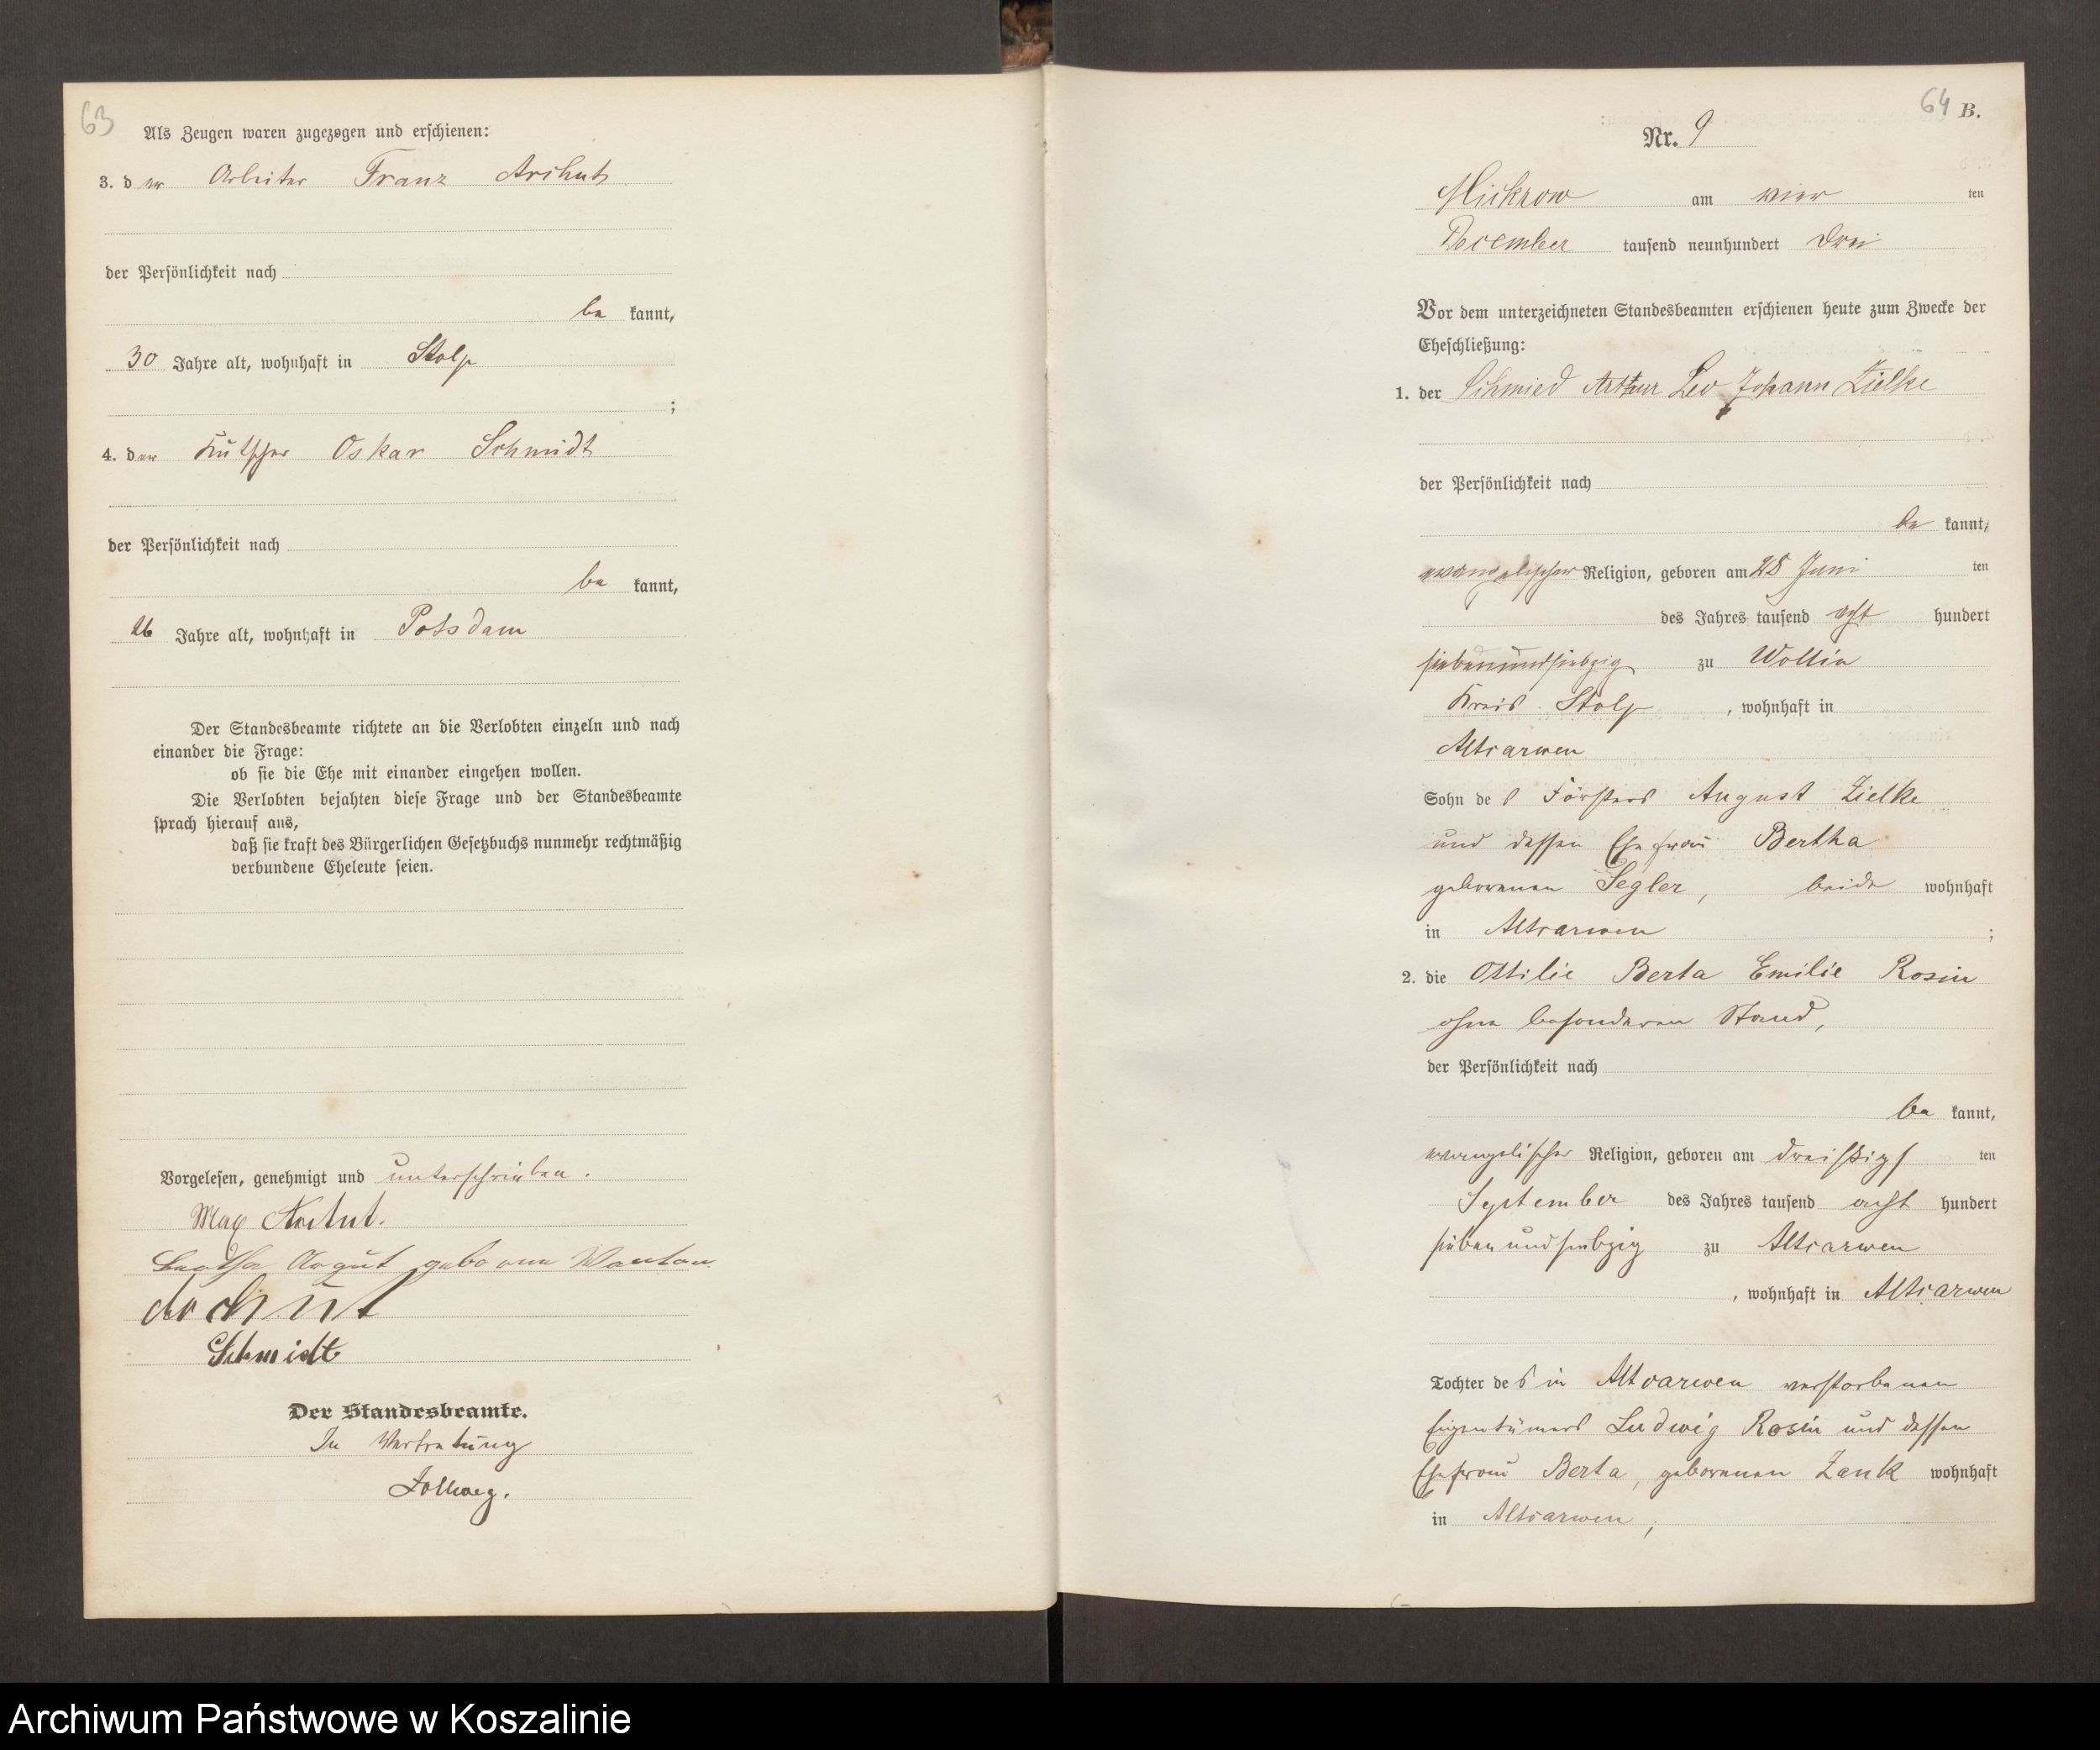 63
Als Zeugen waren zugezogen und erschienen:
3. der Arbeiter Franz Archut
der Persönlichkeit nach
be kannt,
30 Jahre alt, wohnhaft in Stolp
;
4. der Kutscher Oskar Schmidt
der Persönlichkeit nach
be kannt,
26 Jahre alt, wohnhaft in Potsdam
Der Standesbeamte richtete an die Verlobten einzeln und nach
einander die Frage:
ob sie die Ehe mit einander eingehen wollen.
Die Verlobten bejahten diese Frage und der Standesbeamte
sprach hierauf aus,
daß sie kraft des Bürgerlichen Gesetzbuchs nunmehr rechtmäßig
verbundene Eheleute seien.
Vorgelesen, genehmigt und unterschrieben.
Max Archut.
geborene
Archut
Schmidt
Der Standesbeamte.
In Vertretung
Zollweg.
64 B.
Nr. 9
Mickrow am vier ten
December tausend neunhundert drei
Vor dem unterzeichneten Standesbeamten erschienen heute zum Zwecke der
Eheschließung:
1. der Schmied Arthur Leo Johann Zielke
der Persönlichkeit nach
be kannt,
evangelischer Religion, geboren am 28 Juni ten
des Jahres tausend acht hundert
siebenundsiebzig zu Wollin
Kreis Stolp, wohnhaft in
Altcarwen
Sohn des Försters August Zielke
und dessen Ehefrau Bertha
geborenen Segler, beide wohnhaft
in Altcarwen ;
2. die Ottilie Berta Emilie Rosin
ohne besonderen Stand,
der Persönlichkeit nach
be kannt,
evangelischer Religion, geboren am dreißigs ten
September des Jahres tausend acht hundert
siebenundsiebzig zu Altcarwen
, wohnhaft in Altcarwen
Tochter des in Altcarwen verstorbenen
Eigentümers Ludwig Rosin und dessen
Ehefrau Berta, geborenen Zank wohnhaft
in Altcarwen ;
Archiwum Państwowe w Koszalinie